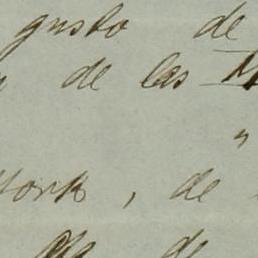 gusto de
de las
"
York, de
de